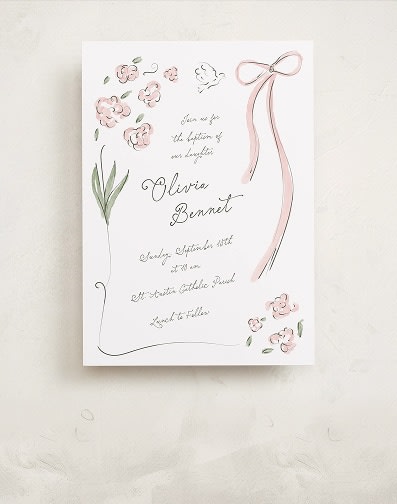 Join us for
the baptism of
our daughter
Olivia
Bennet
Sunday, September 18th
at 10 am
St Austin Catholic Parish
Lunch to Follow